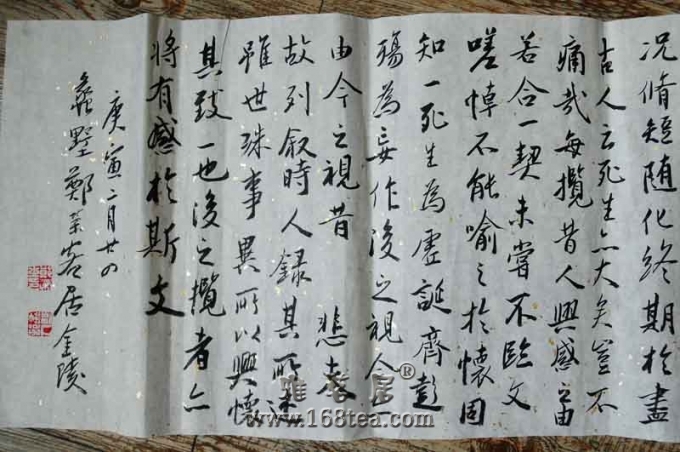 况脩短随化终期於盡
古人云死生亦大矣豈不
痛哉每攬昔人興感之由
若合一契未嘗不臨文
嗟悼不能喻之於懷固
知一死生為虛誕齊彭
殤為妄作後之視今亦
由今之視昔 悲夫
故列叙時人録其所述
雖世殊事異所以興懷
其致一也後之攬者亦
將有感於斯文
庚寅二月廿四
墅鄭居金陵
®
www.168tea.com